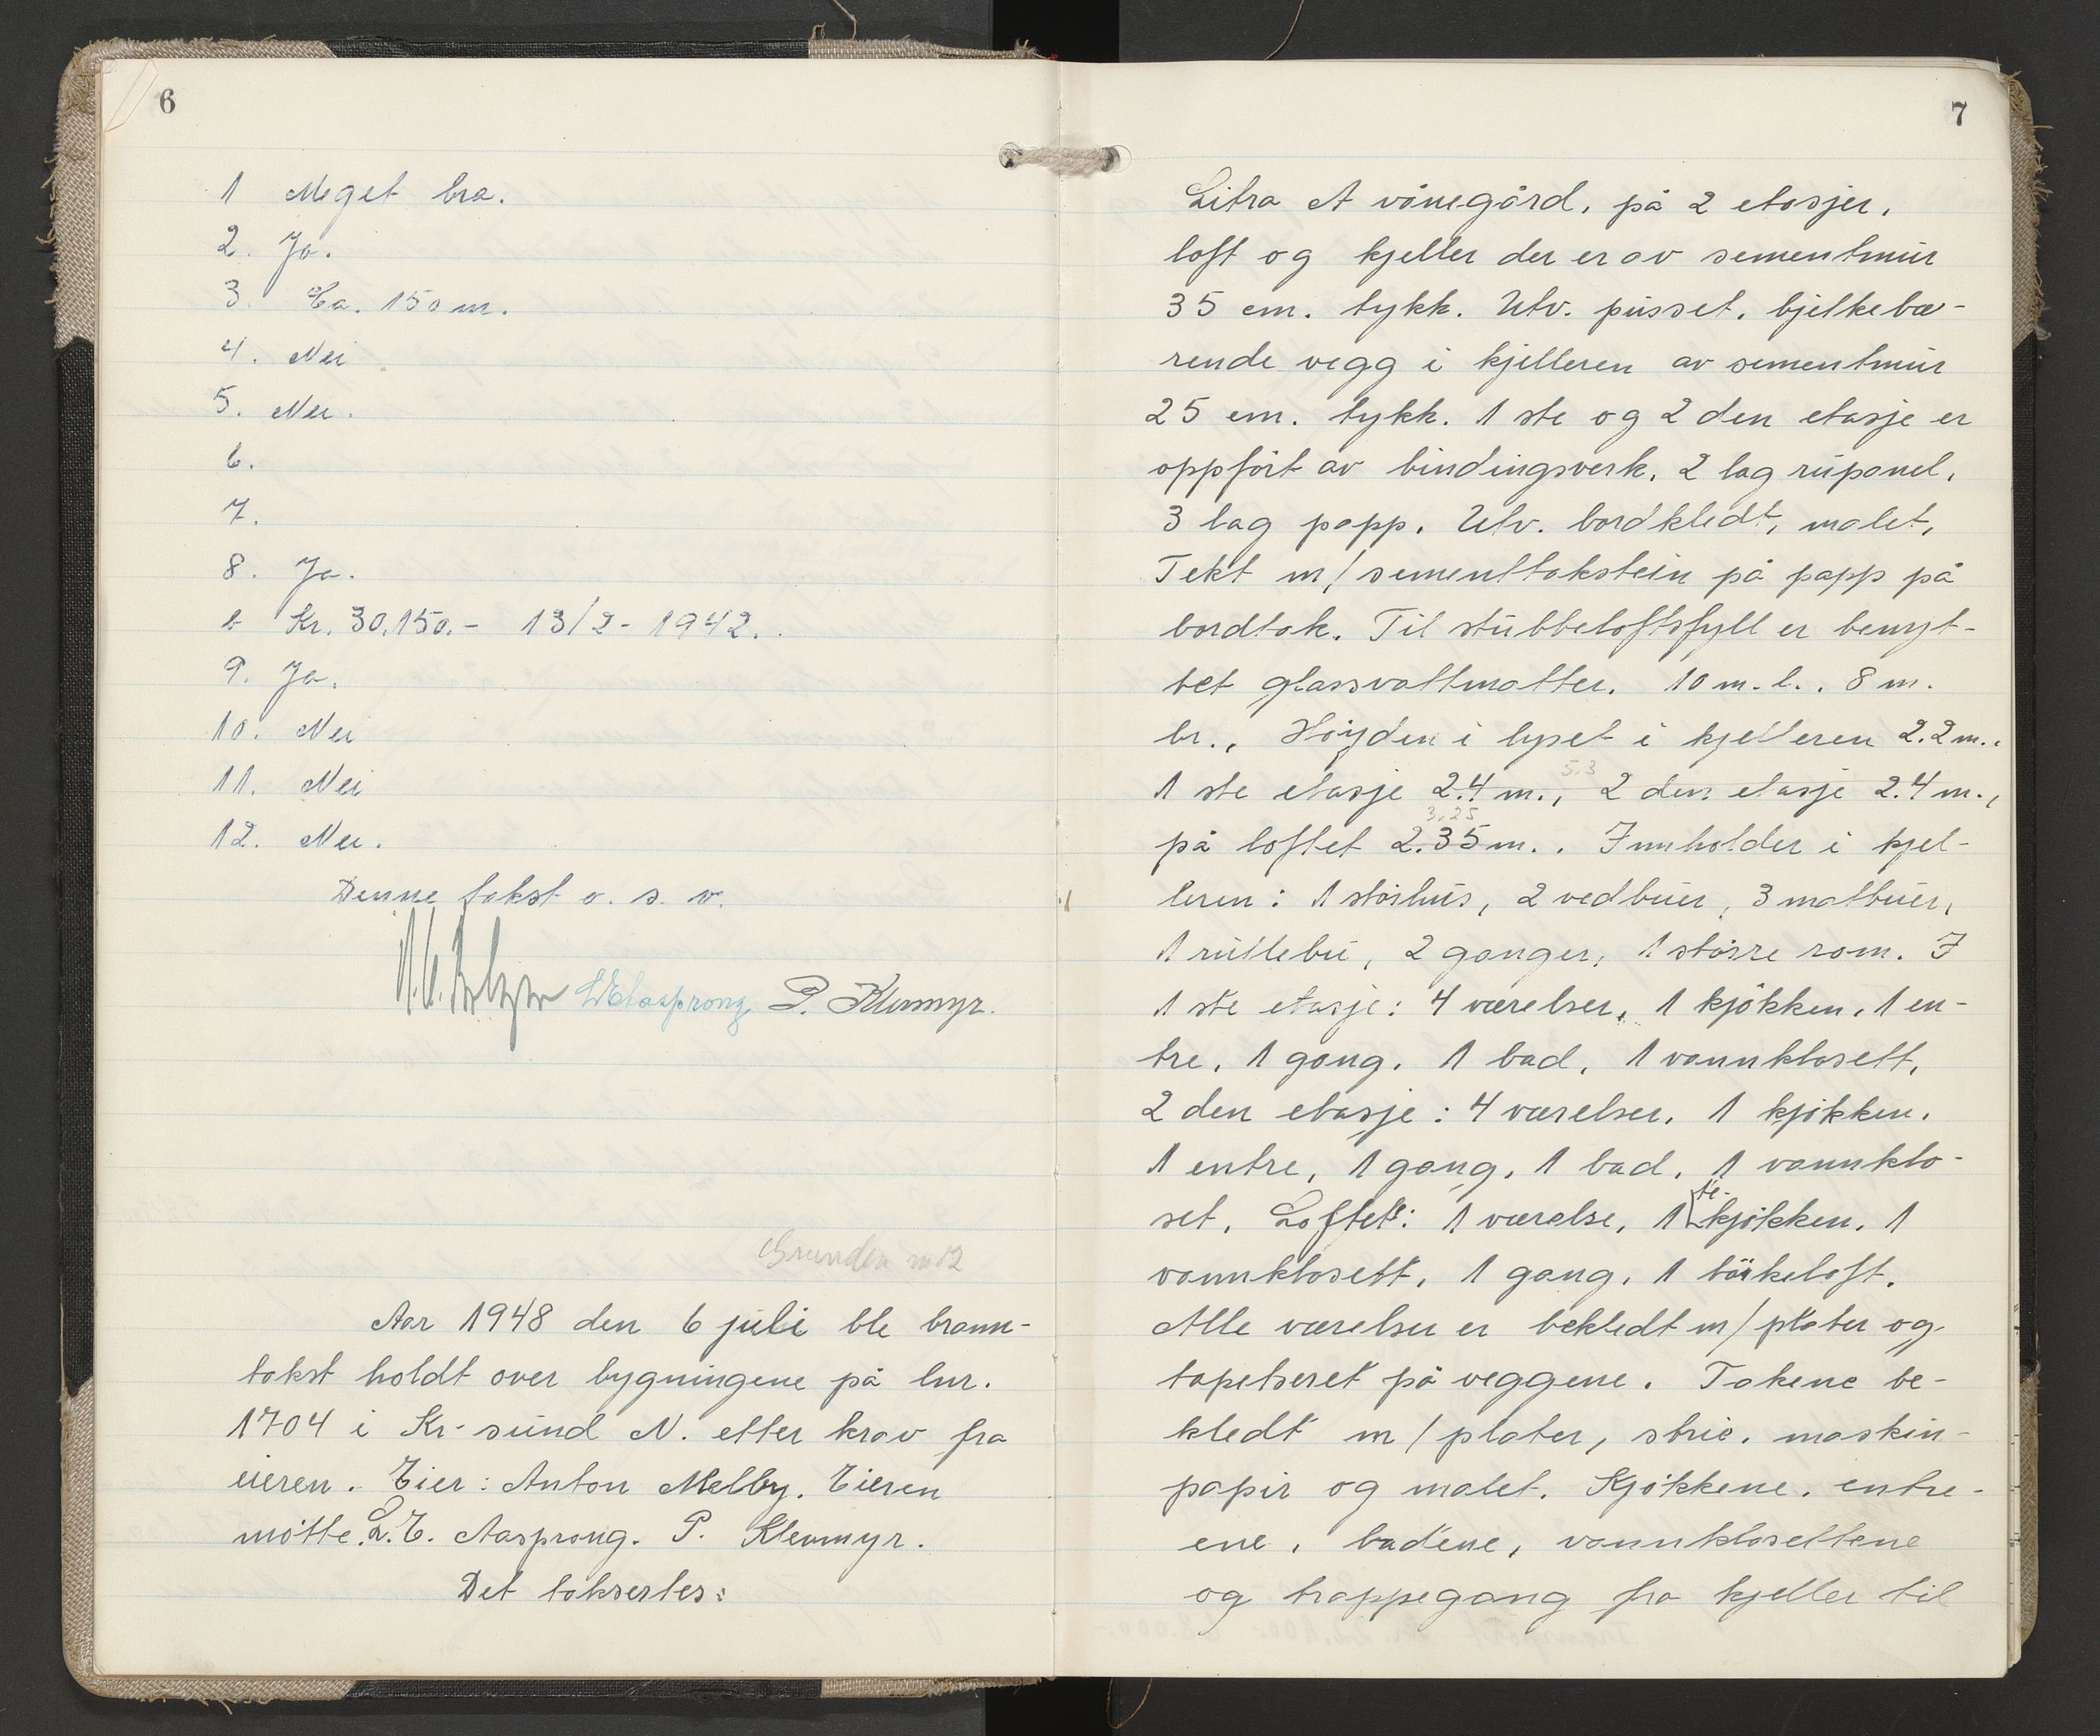 6
1 Meget bra.
2. Ja.
3. Ca. 150 m.
4. Nei
5. Nei.
6.
7.
8. Ja.
b Kr. 30.150.- 13/2- 1942.
9. Ja.
10. Nei
11. Nei
12. Nei.
Denne takst o. s. v.
L E Aasprong P. Klevmyr.
Grunden nr 12
Aar 1948 den 6 juli ble brann-
takst holdt over bygningene på lnr.
1704 i Kr-sund N. etter krav fra
eieren. Eier: Anton Melby. Eieren
møtte. L. E. Aasprong. P. Klevmyr.
Det taksertes:
7
Litra A vånegård, på 2 etasjer,
loft og kjeller der er av sementmur
35 cm. tykk. Utv. pusset, bjelkebæ-
rende vegg i kjelleren av sementmur
25 cm. tykk. 1 ste og 2 den etasje er
oppført av bindingsverk, 2 lag rupanel,
3 lag papp. Utv. bordkledt, malet,
Tekt m/sementtakstein på papp på
bordtak. Til stubbeloftsfyll er benyt-
tet glassvattmatter. 10 m. l., 8 m.
br., Høyden i lyset i kjelleren 2.2 m.,
5.3
1 ste etasje 2.4 m., 2 den etasje 2.4 m.,
3.25
på loftet 2.35 m.. Innholder i kjel-
leren: 1 størhus, 2 vedbuer, 3 matbuer,
1 rullebu, 2 ganger, 1 større rom. I
1 ste etasje: 4 værelser, 1 kjøkken, 1 en-
tre, 1 gang, 1 bad, 1 vannklosett,
2 den etasje: 4 værelser, 1 kjøkken,
1 entre, 1 gang, 1 bad, 1 vannklo-
te-
set, Loftet: 1 værelse, 1 kjøkken, 1
vannklosett, 1 gang, 1 tørkeloft.
Alle værelser er bekledt m/plater og
tapetseret på veggene. Takene be-
kledt m/plater, strie, maskin-
papir og malet. Kjøkkene, entre-
ene, badene, vannklosettene
og trappegang fra kjeller til